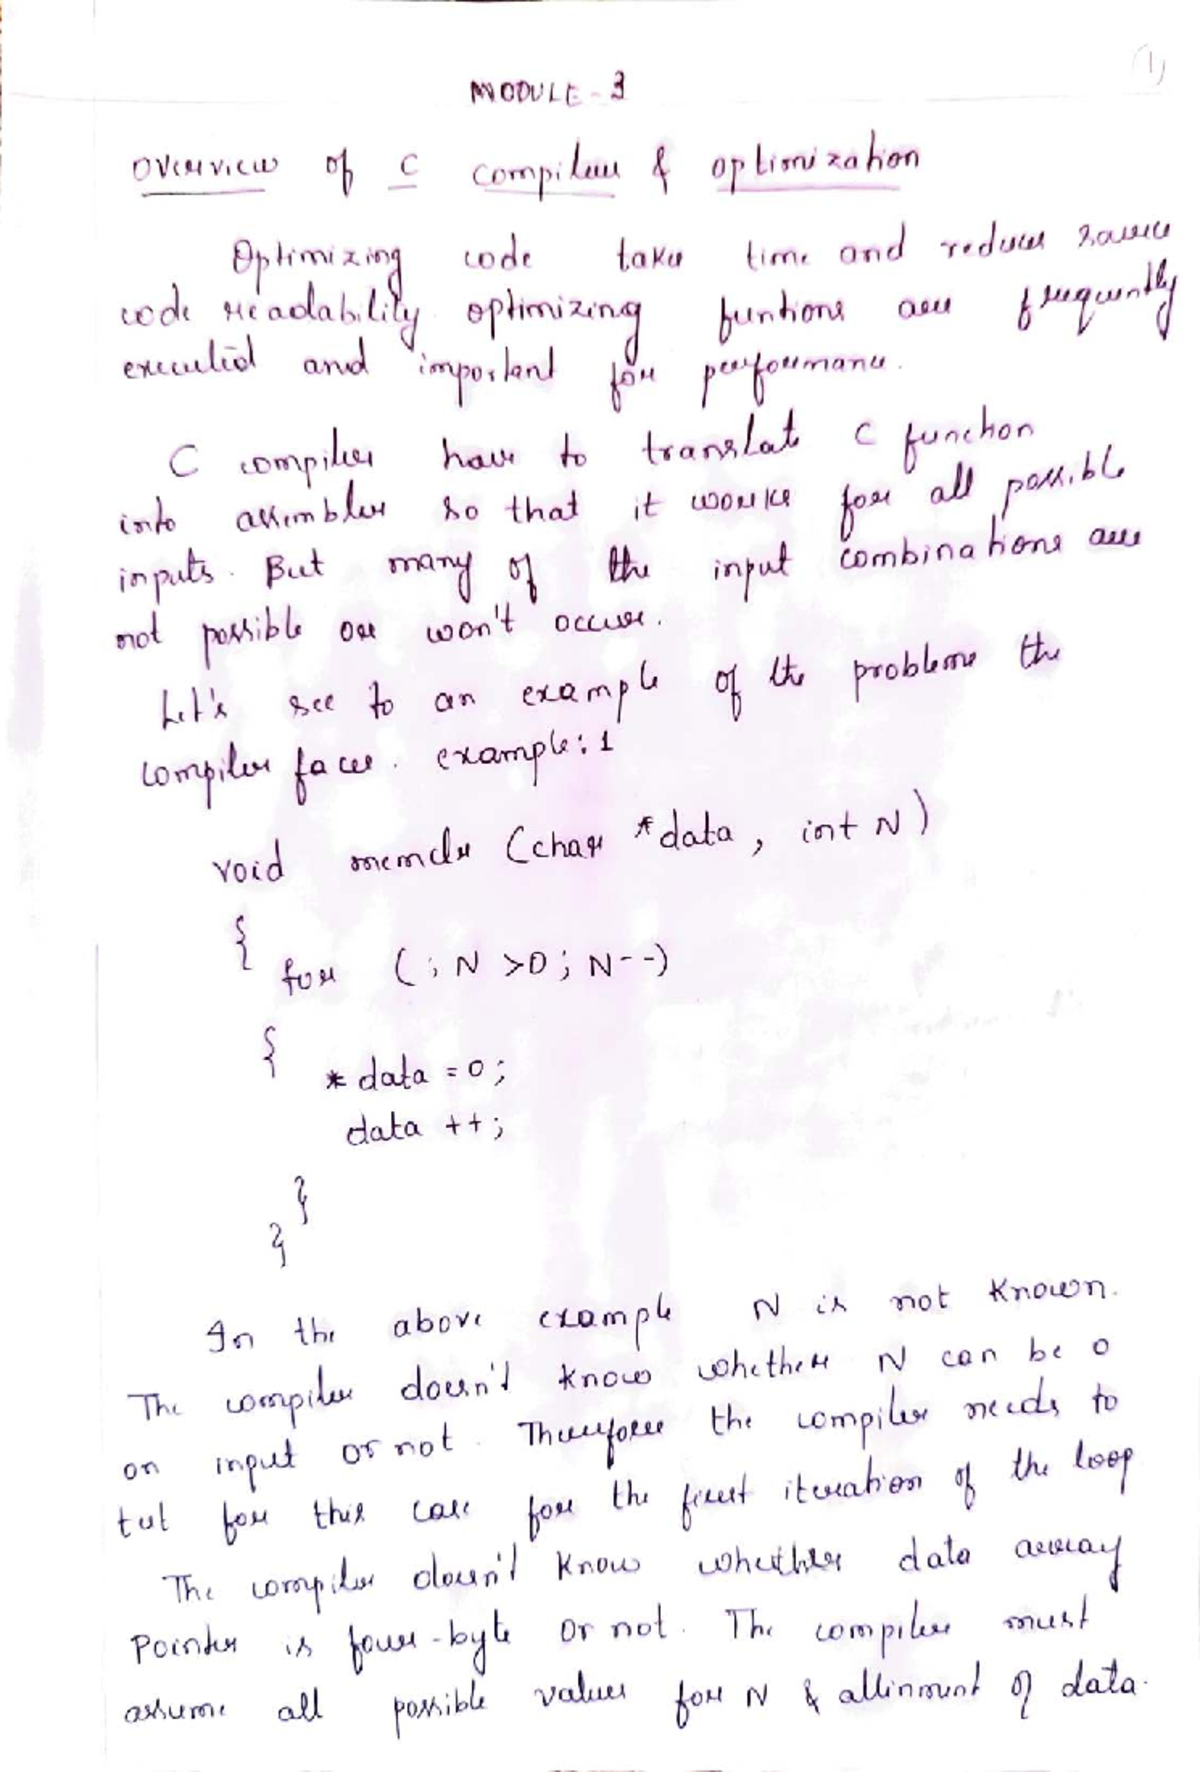 (1)
MODULE - 3
Overview of C compiler & optimization
Optimizing code take time and reduces source
code readability optimizing funtions are frequently
executed and important for performance.
C compiler have to translate C function
into assembler so that it works for all possible
inputs. But many of the input combinations are
not possible or won't occur.
Let's see to an example of the problems the
compiler faces. example: 1
void memclr (char *data, int N)
{
for (; N >0; N--)
{
* data = 0;
data ++;
}
}
In the above example N is not known.
The compiler doesn't know whether N can be 0
on input or not. Therefore the compiler needs to
test for this case for the first iteration of the loop
The compiler doesn't know whether data array
Pointer is four-byte or not. The compiler must
assume all possible values for N & allinment of data.